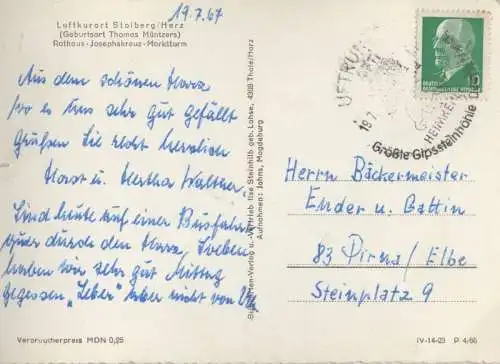 19.7.67
Luftkurort Stolberg/Harz
(Geburtsort Thomas Müntzers)
Rathaus - Josephskreuz - Marktturm
Aus dem schönen Harz
wo es uns sehr gut gefällt
Grüßen Sie recht herzlich
Horst u. Hertha Walther.
Sind heute auf einer Busfahrt
quer durch den Harz, Soeben
haben wir sehr gut Mittag
gegessen „Leber“ aber nicht von
Verbraucherpreis MDN 0,25
Verlag u. Vertrieb Ilse Steinhilb, geb. Lohse, 4308 Thale/Harz
Aufnahmen: Jahns, Magdeburg
LUFTKUR
19.7.
HEIMKEHLE
Größte Gipssteinhöhle
10
Herrn Bäckermeister
Ender u. Gattin
83 Pirna/Elbe
Steinplatz 9
IV-14-23 P 4/66